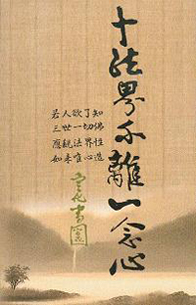 十法界不離一念心
若人欲了知
三世一切佛
應觀法界性
唯心造
宣化書